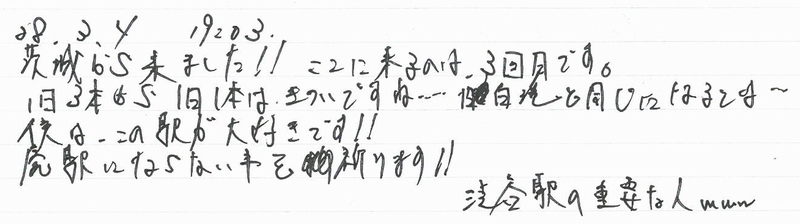 28.3.4 19:03.
茨城から来ました!! ここに来るのは、3回目です。
1日3本から1日1本は、きついですね…… 白滝と同じになるとは〜
僕は、この駅が大好きです!!
廃駅にならない事を祈ります!!
渋谷駅の重要な人mm